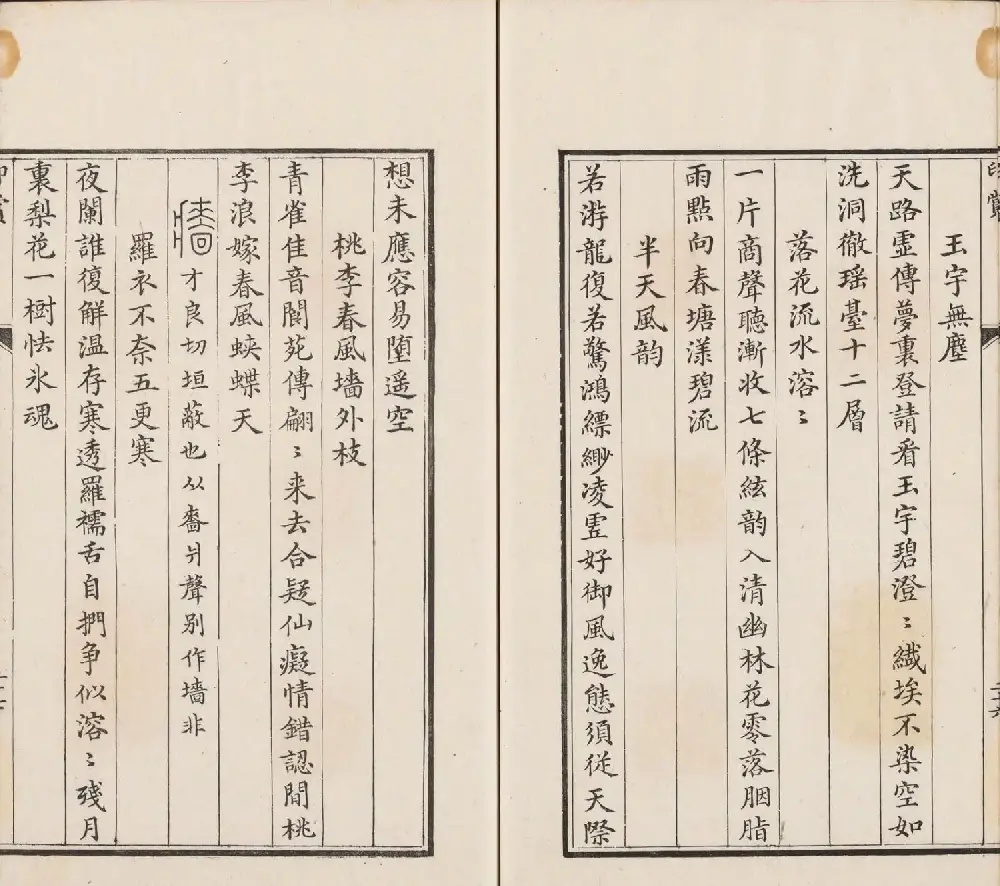 玉宇無塵
天路雲傳夢裏登請看玉宇碧澄〻纖埃不染空如
洗洞徹瑶臺十二層
落花流水溶〻
一片商聲聽漸收七條絃韵入清幽林花零落胭脂
雨點向春塘漾碧流
半天風韵
若游龍復若驚鴻縹緲凌雲好御風逸態須從天際
想未應容易墮遥空
桃李春風墻外枝
青雀佳音閬苑傳翩〻来去合疑仙癡情錯認閒桃
李浪嫁春風蛺蝶天
才良切垣蔽也从嗇爿聲别作墻非
羅衣不奈五更寒
夜闌誰復解温存寒透羅襦舌自捫争似溶〻残月
裏梨花一樹怯氷魂